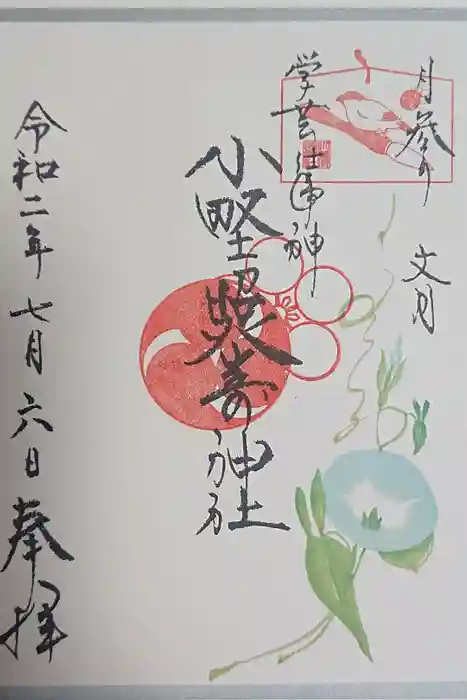 月参り 文月
学芸の神
小野照崎神社
令和二年七月六日奉拝